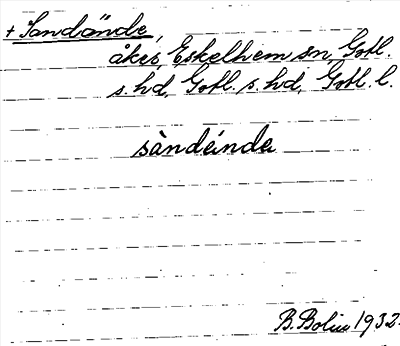 + Sandände,
åker, Eskelhem sn, Gotl.
s. hd, Gotl. s. hd, Gotl. l.
sàndèinda
B. Bolin 1932.